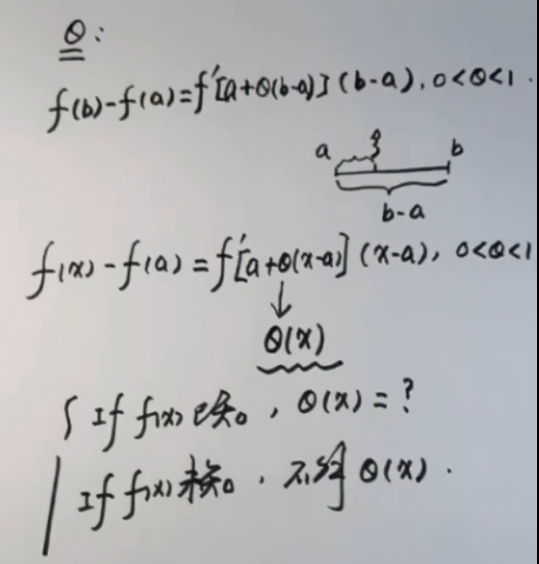 θ:
f(b)-f(a)=f'[a+θ(b-a)](b-a), 0<θ<1.
a ξ b
b-a
f(x)-f(a)=f'[a+θ(x-a)](x-a), 0<θ<1
↓
θ(x)
{ If f(x)已知。, θ(x)=?
If f(x)未知。, 不 θ(x).